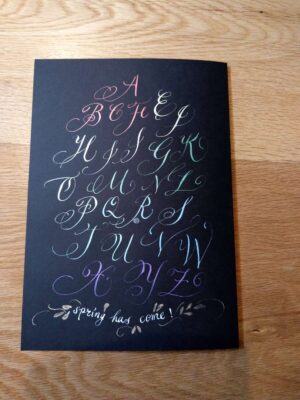 A
B C F E
H G K
O M N L
P Q R S
T U V W
X Y Z
spring has come!